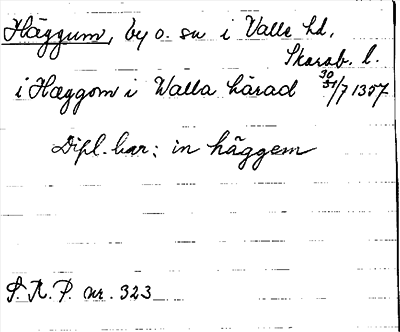 Häggum, by o. sn i Valle hd,
Skarab. l.
i Hæggom i Walla härad 30/31/7 1357
Dipl. har: in häggem
S. R. P. nr. 323